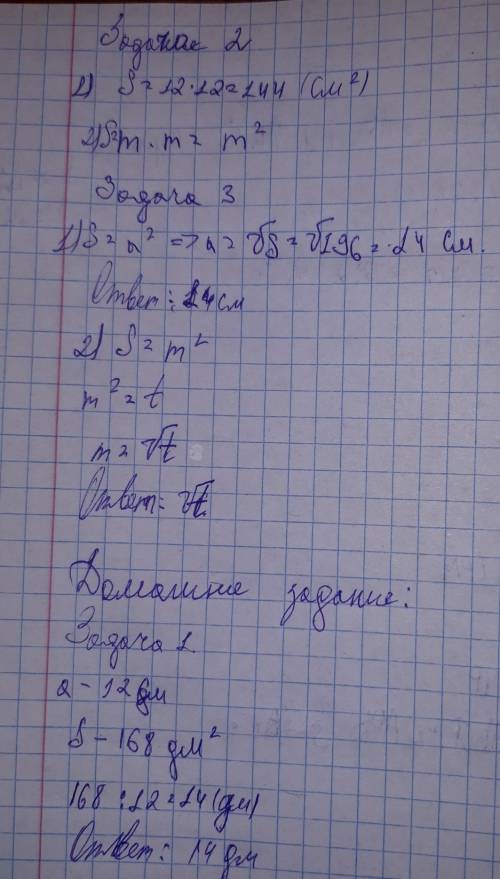 Задача 2
1) S = 12 · 12 = 144 (см²)
2) S = m · m = m²
Задача 3
1) S = a² => a = √S = √196 = 14 см.
Ответ: 14 см
2) S = m²
m² = t
m = √t
Ответ = √t
Домашние задание:
Задача 1
a - 12 дм
S - 168 дм²
168 : 12 = 14 (дм)
Ответ: 14 дм